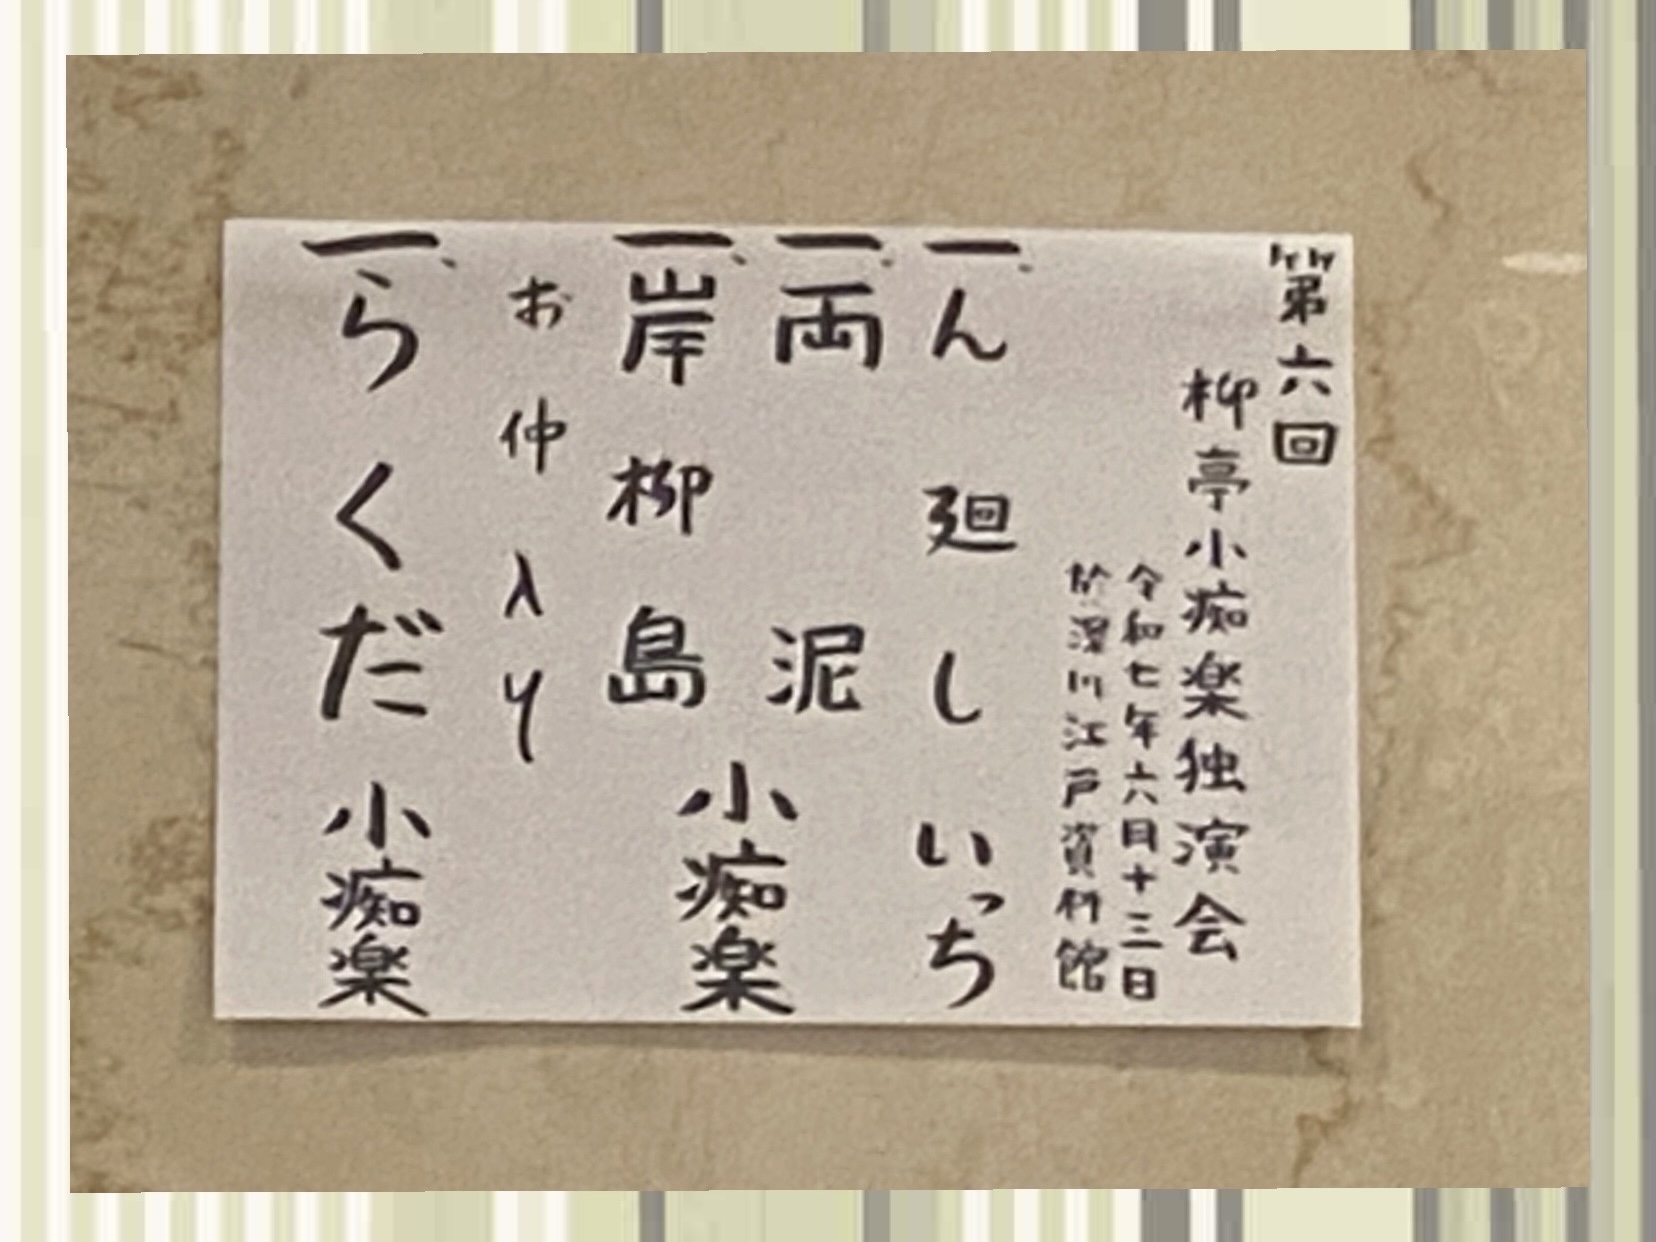 第六回
柳亭小痴楽独演会
令和七年六月十三日
於深川江戸資料館
一、ん廻し いっち
一、両泥
一、岸柳島 小痴楽
お仲入り
一、らくだ 小痴楽